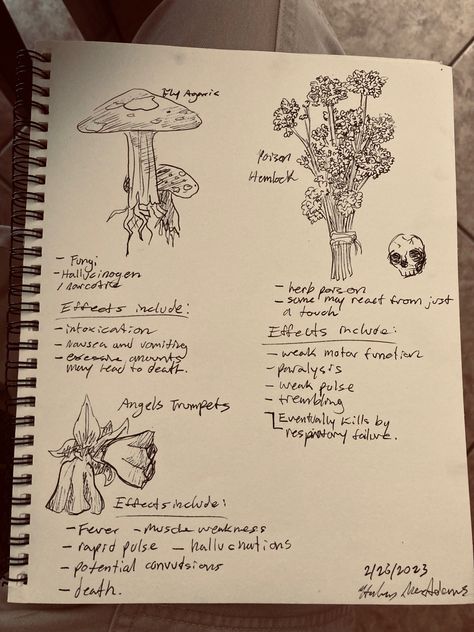 Fly Agaric
- Fungi
- Hallucinogen
/narcotic
Effects include:
- intoxication
- nausea and vomiting
- excessive amounts
may lead to death.
Poison
Hemlock
- herb poison
- some may react from just
a touch
Effects include:
- weak motor function
- paralysis
- weak pulse
- trembling
Eventually kills by
respiratory failure.
Angels Trumpets
Effects include:
- Fever - Muscle weakness
- rapid pulse - halluchations
- potential convulsions
- death.
2/26/2023